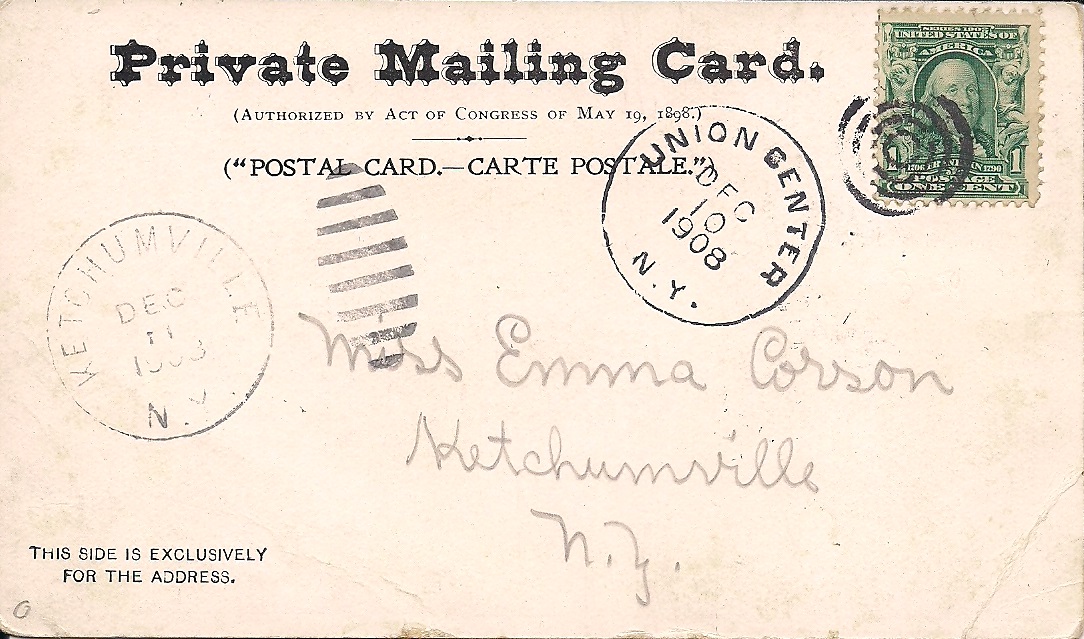 Private Mailing Card.
(AUTHORIZED BY ACT OF CONGRESS OF MAY 19, 1898.)
("POSTAL CARD.—CARTE POSTALE.")
SERIES 1902
UNITED STATES OF
AMERICA
1 1
POSTAGE
ONE CENT
UNION CENTER
DEC
10
1908
N.Y.
KETCHUMVILLE
DEC
11
1908
N.Y.
Miss Emma Corson
Ketchumville
N.Y.
THIS SIDE IS EXCLUSIVELY
FOR THE ADDRESS.